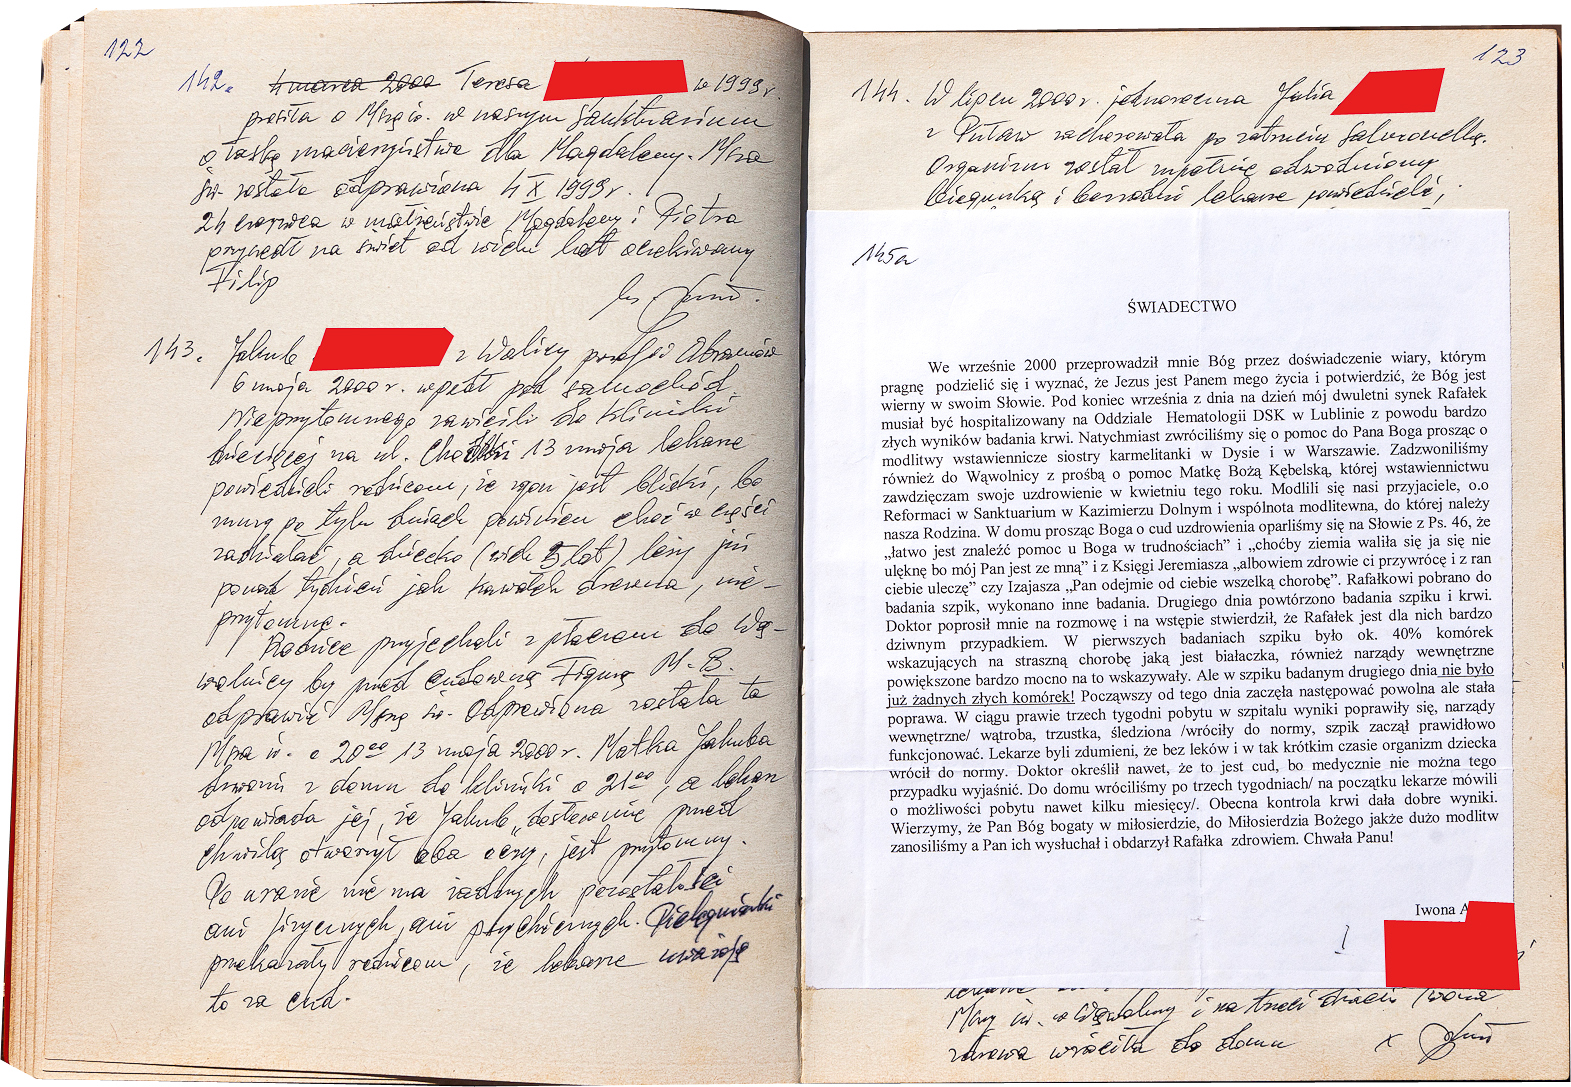 122
142. 4 marca 2000 Teresa w 1999 r.
prosiła o Mszę św. w naszym Sanktuarium
o łaskę macierzyństwa dla Magdaleny. Msza
św. została odprawiona 4 X 1999 r.
24 czerwca w małżeństwie Magdaleny i Piotra
przyszedł na świat od wielu lat oczekiwany
Filip
ks.
143. Jakub z Walicy parafii Abramów
6 maja 2000 r. wpadł pod samochód.
Nieprzytomnego zawieźli do kliniki
dziecięcej na ul. 13 maja lekarze
powiedzieli rodzicom, że zgon jest bliski, bo
mózg po tylu dniach powinien choć w części
zadziałać, a dziecko (wiek 5 lat) leży już
ponad tydzień jak kawałek drewna, nie-
przytomne.
Rodzice przyjechali z płaczem do Wą-
wolnicy by przed cudowną Figurą M. B.
odprawić Mszę św. Odprawiona została ta
Msza św. o 20⁰⁰ 13 maja 2000 r. Matka Jakuba
dzwoni z domu do kliniki o 21⁰⁰, a lekarz
odpowiada jej, że Jakub „dosłownie przed
chwilą otworzył oba oczy, jest przytomny.
Po urazie nie ma żadnych pozostałości
ani fizycznych, ani psychicznych. Pielęgniarki
przekazały rodzicom, że lekarze uważają
to za cud.
123
144. W lipcu 2000 r. jednoroczna Julia
z Puław zachorowała po zatruciu salmonellą.
Organizm został zupełnie odwodniony
biegunką i bezradni lekarze powiedzieli,
145a
ŚWIADECTWO
We wrześnie 2000 przeprowadził mnie Bóg przez doświadczenie wiary, którym
pragnę podzielić się i wyznać, że Jezus jest Panem mego życia i potwierdzić, że Bóg jest
wierny w swoim Słowie. Pod koniec września z dnia na dzień mój dwuletni synek Rafałek
musiał być hospitalizowany na Oddziale Hematologii DSK w Lublinie z powodu bardzo
złych wyników badania krwi. Natychmiast zwróciliśmy się o pomoc do Pana Boga prosząc o
modlitwy wstawiennicze siostry karmelitanki w Dysie i w Warszawie. Zadzwoniliśmy
również do Wąwolnicy z prośbą o pomoc Matkę Bożą Kębelską, której wstawiennictwu
zawdzięczam swoje uzdrowienie w kwietniu tego roku. Modlili się nasi przyjaciele, o.o
Reformaci w Sanktuarium w Kazimierzu Dolnym i wspólnota modlitewna, do której należy
nasza Rodzina. W domu prosząc Boga o cud uzdrowienia oparliśmy się na Słowie z Ps. 46, że
„łatwo jest znaleźć pomoc u Boga w trudnościach” i „choćby ziemia waliła się ja się nie
ulęknę bo mój Pan jest ze mną” i z Księgi Jeremiasza „albowiem zdrowie ci przywrócę i z ran
ciebie uleczę” czy Izajasza „Pan odejmie od ciebie wszelką chorobę”. Rafałkowi pobrano do
badania szpik, wykonano inne badania. Drugiego dnia powtórzono badania szpiku i krwi.
Doktor poprosił mnie na rozmowę i na wstępie stwierdził, że Rafałek jest dla nich bardzo
dziwnym przypadkiem. W pierwszych badaniach szpiku było ok. 40% komórek
wskazujących na straszną chorobę jaką jest białaczka, również narządy wewnętrzne
powiększone bardzo mocno na to wskazywały. Ale w szpiku badanym drugiego dnia nie było
już żadnych złych komórek! Począwszy od tego dnia zaczęła następować powolna ale stała
poprawa. W ciągu prawie trzech tygodni pobytu w szpitalu wyniki poprawiły się, narządy
wewnętrzne/ wątroba, trzustka, śledziona /wróciły do normy, szpik zaczął prawidłowo
funkcjonować. Lekarze byli zdumieni, że bez leków i w tak krótkim czasie organizm dziecka
wrócił do normy. Doktor określił nawet, że to jest cud, bo medycznie nie można tego
przypadku wyjaśnić. Do domu wróciliśmy po trzech tygodniach/ na początku lekarze mówili
o możliwości pobytu nawet kilku miesięcy/. Obecna kontrola krwi dała dobre wyniki.
Wierzymy, że Pan Bóg bogaty w miłosierdzie, do Miłosierdzia Bożego jakże dużo modlitw
zanosiliśmy a Pan ich wysłuchał i obdarzył Rafałka zdrowiem. Chwała Panu!
Iwona A
Mszy św. w Wąwolnicy i na trzeci dzień Iwona
zdrowa wróciła do domu x